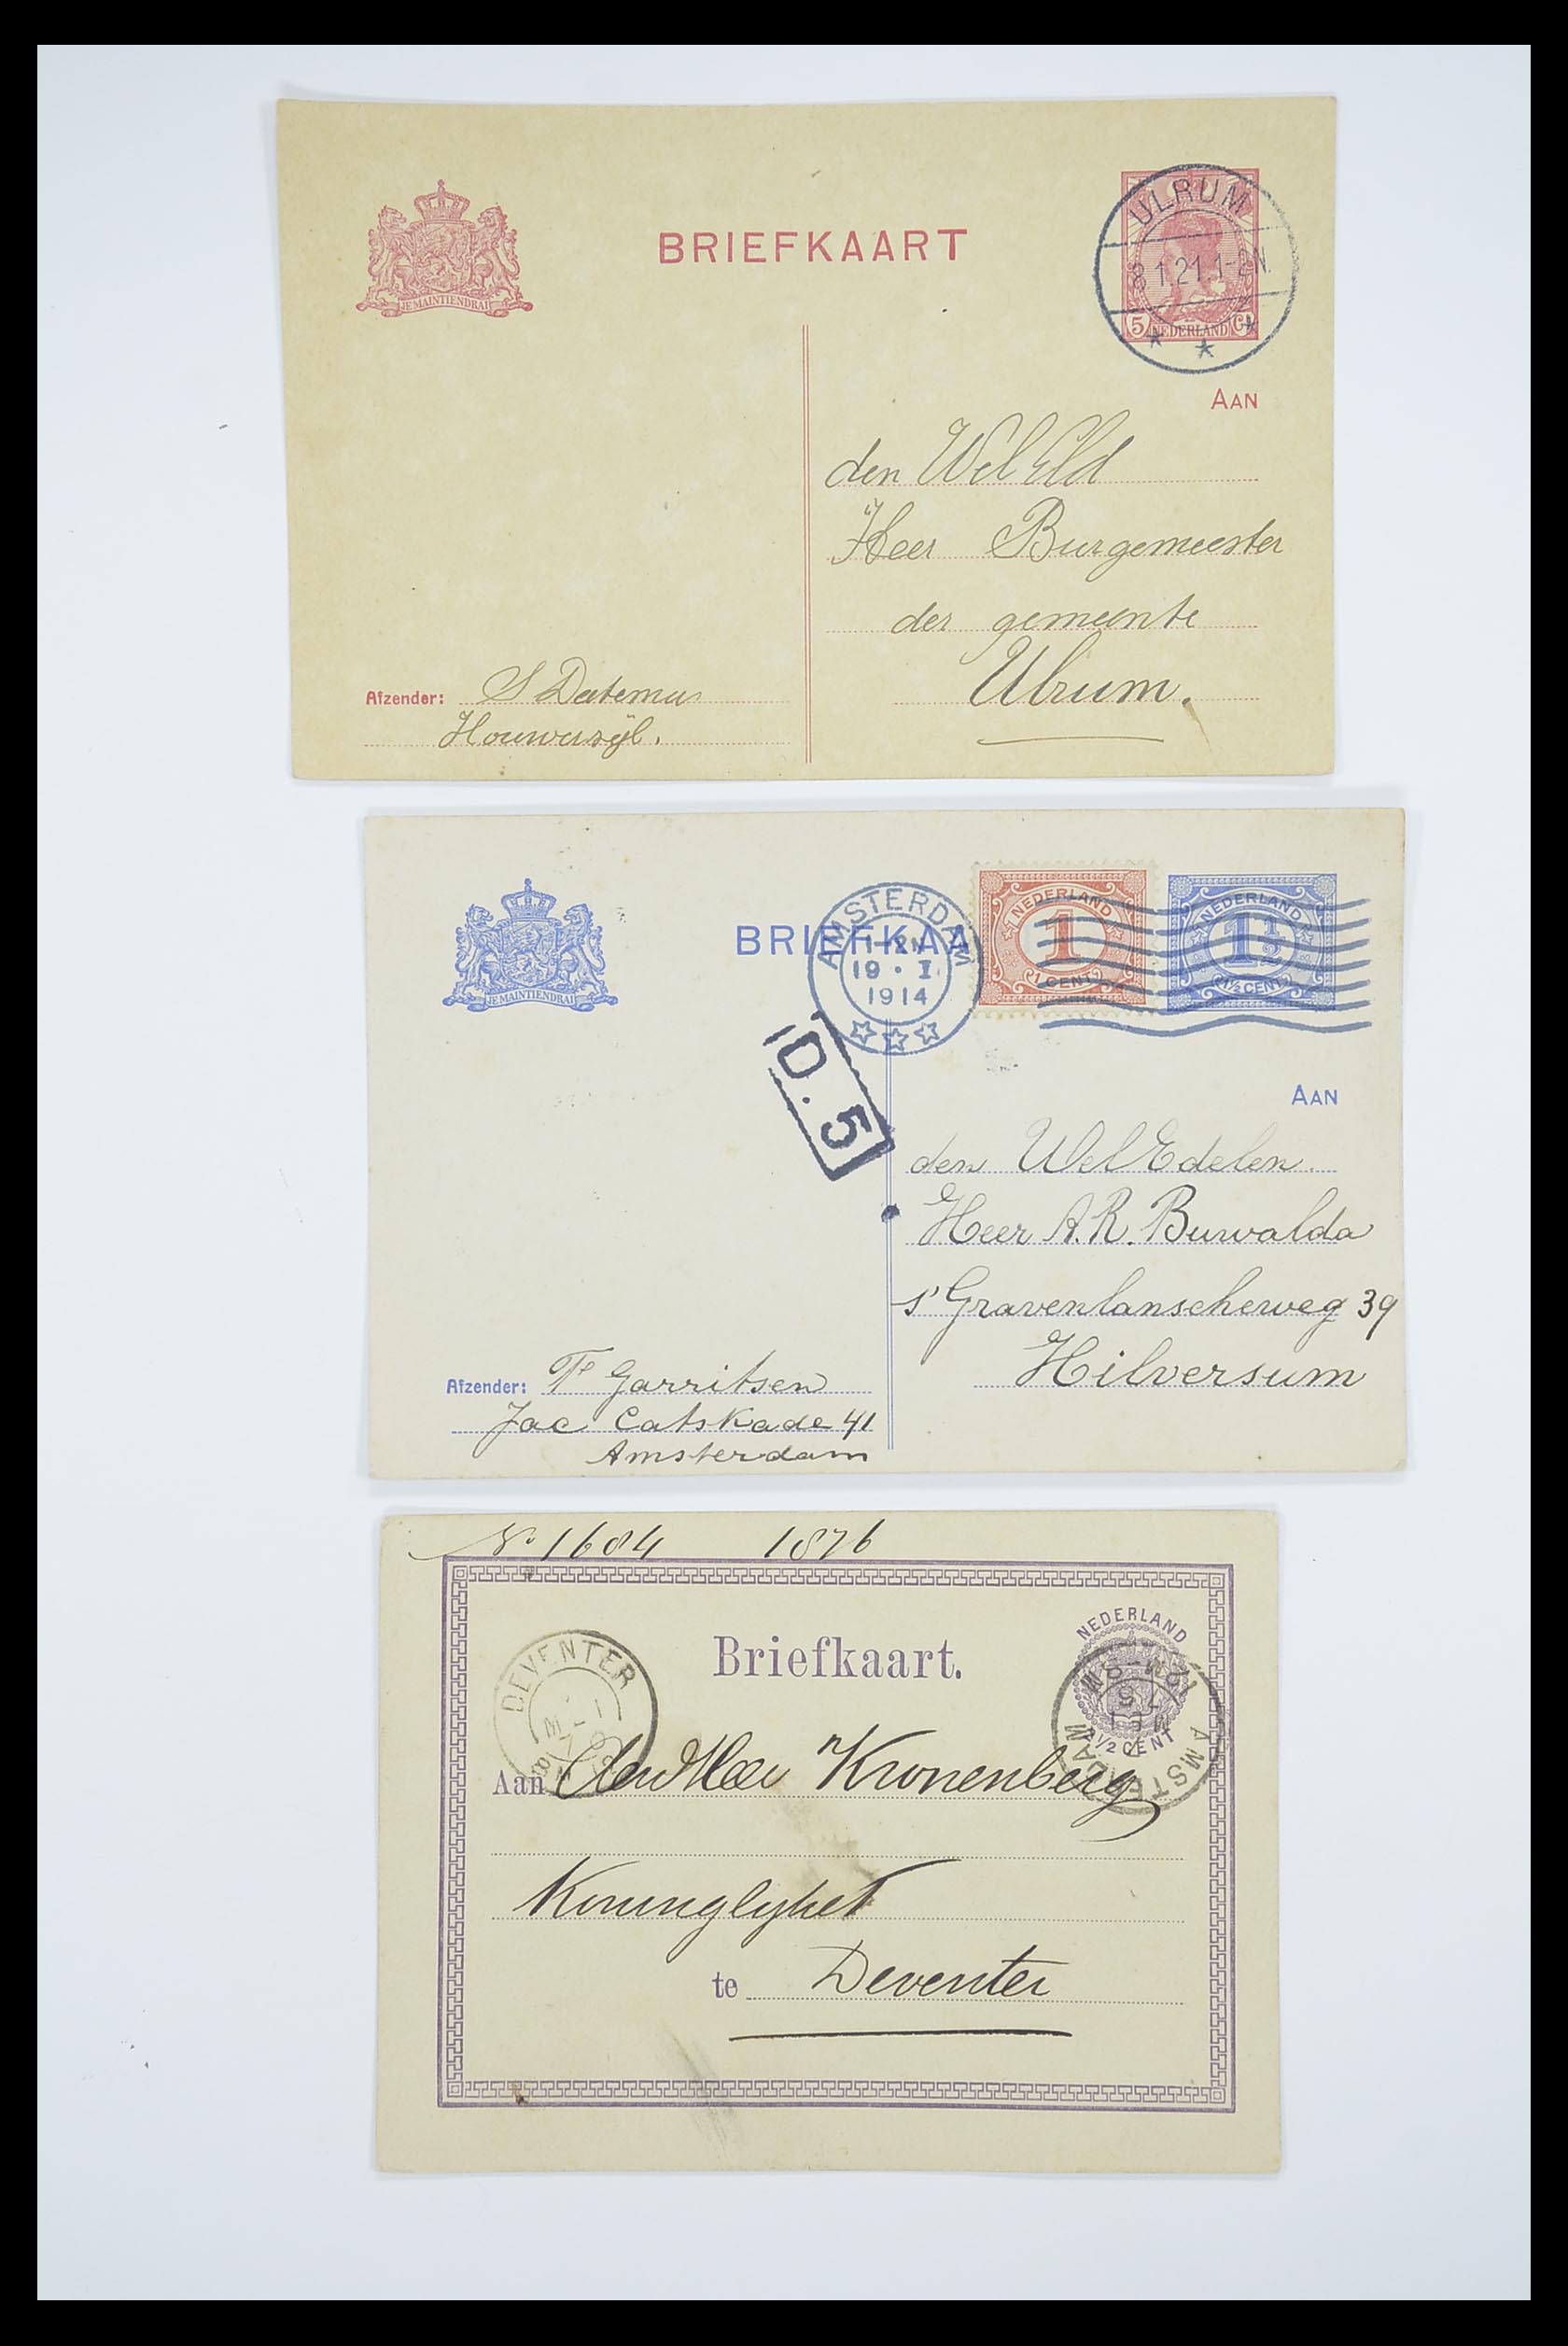 BRIEFKAART
JE MAINTIENDRAI
ULRUM
8.1.21.1-2N
5 NEDERLAND Ct
AAN
den Wel Eld
Heer Burgemeester
der gemeente
Ulrum.
Afzender: S Datema
Houwerzijl.
BRIEFKAA
JE MAINTIENDRAI
AMSTERDAM
1-2N
19 · I
1914
NEDERLAND
1
1 CENT
NEDERLAND
1½
1½ CENT
D.5
AAN
den WelEdelen
Heer A.R. Buwalda
s' Gravenlanscheweg 39
Hilversum
Afzender: Garritsen
Jac Catskade 41
Amsterdam
No 1684 1876
Briefkaart.
DEVENTER
NEDERLAND
2½ CENT
AMSTERDAM
Aan den Heer Kronenberg
te Deventer